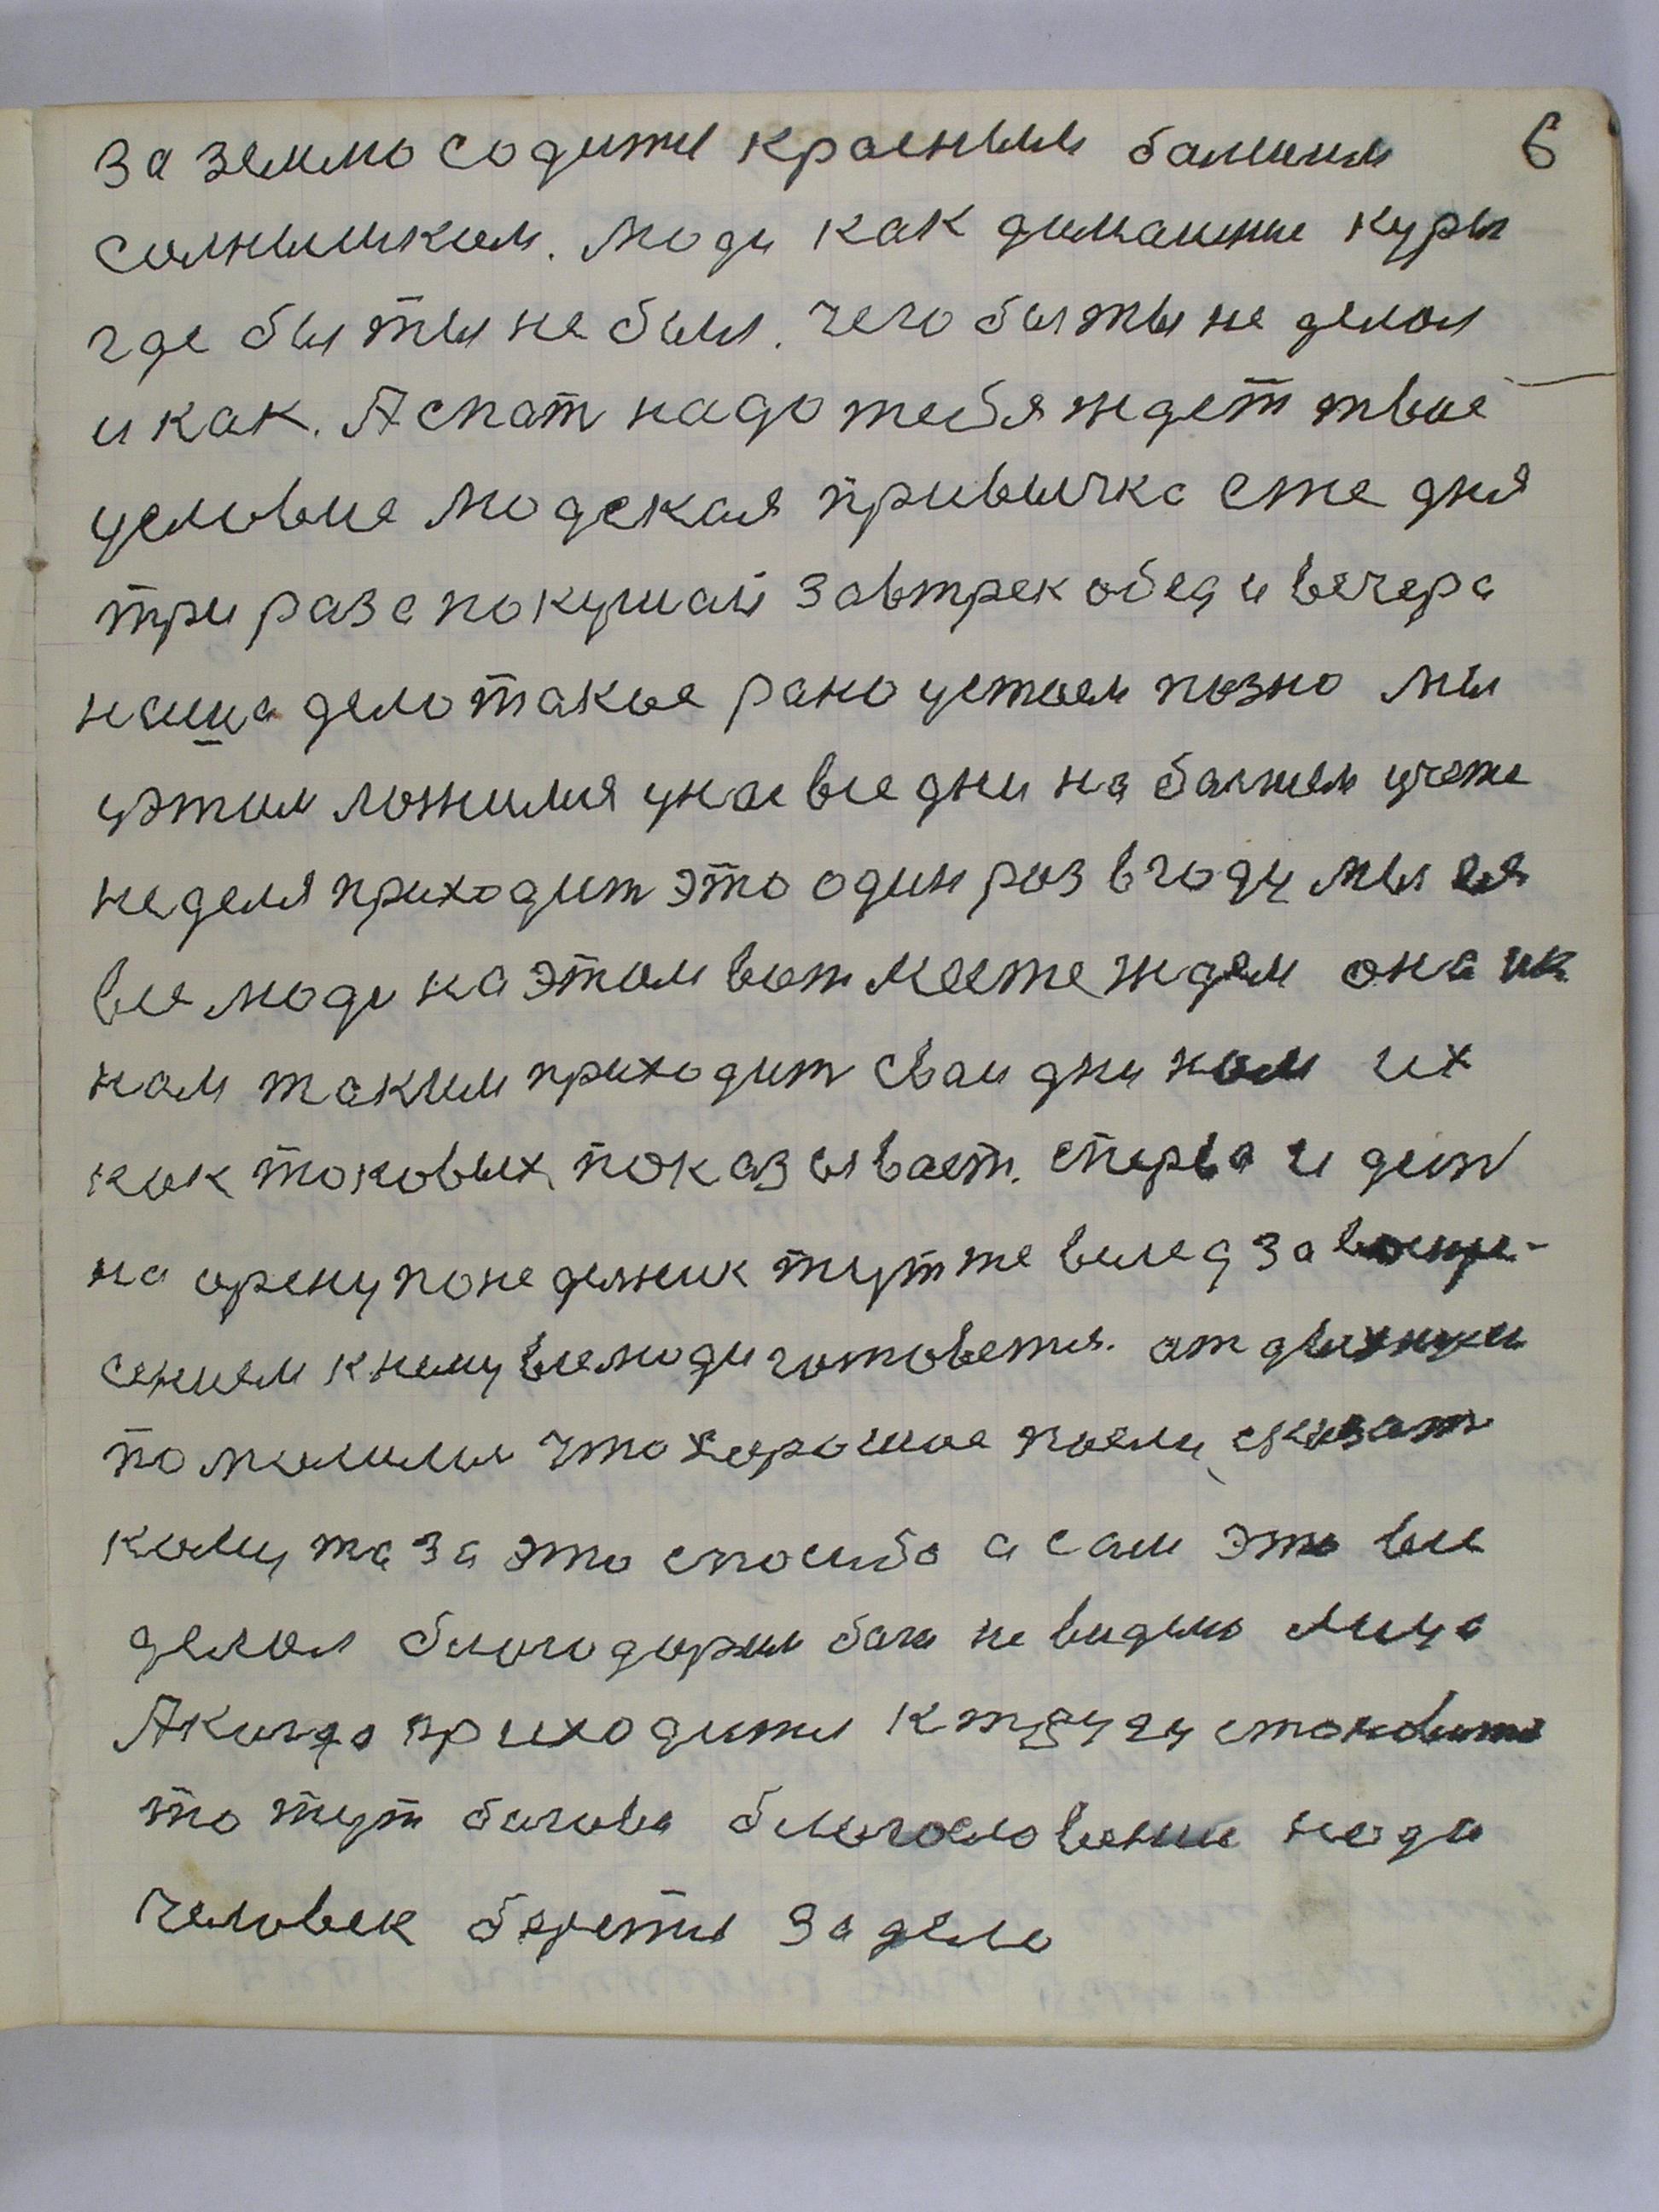 за землю содитсы красным балшим 6
солнышком. люди как димашние куры
где бы ты не был. чего бы ты не делал
и как. А спат надо тебя ждет твое
условие людская привычка сте дня
три раза покушай завтрек обед и вечера
наша дело такое рано устаем позно мы
утом ложимся у нас все дни на балшем учете
неделя приходит это один раз в году мы ея
все люди на этом вот месте ждем она ик
нам таким приходит сваи дни нам их
как таковых показывает. сперва идет
на арену понеделник тут же вслед за васкре-
сением к нему все люди готовется. отдвихнули
помолились что хорошое поели, сказат
каму та за это спосибо а сам это все
делал благодарим бога не видемо лица
А когда приходитсы к труду становитс
то тут богова благословение надо
человек беретсы за дело